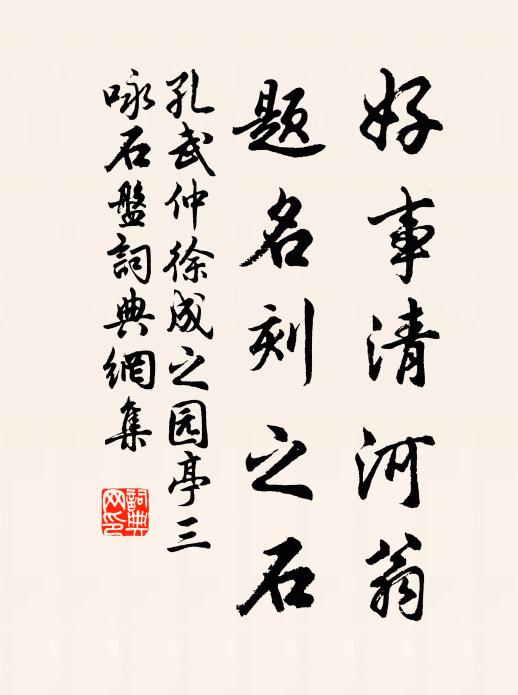 好事清河翁
题名刻之石
孔武仲徐成之园亭三
咏石盤詞典網集
詞典網印